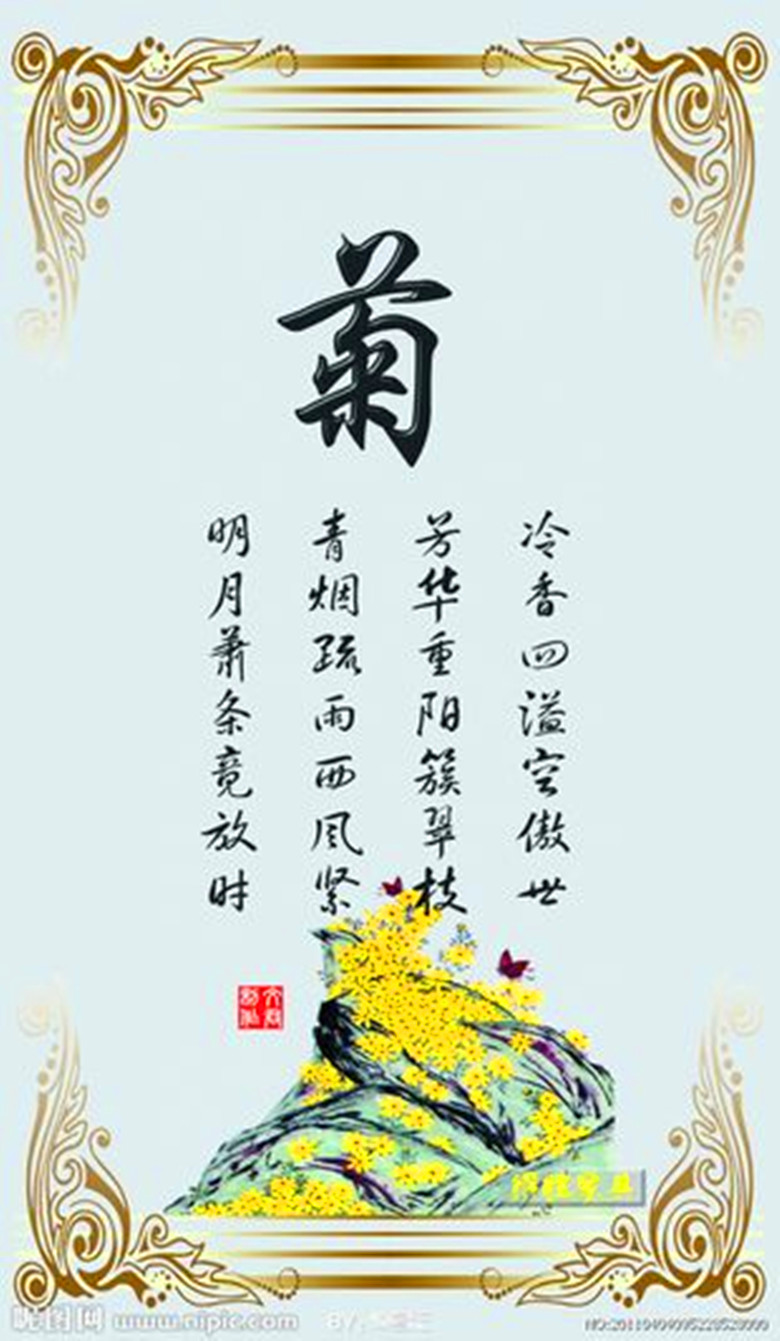 菊
冷香四溢空傲世
芳华重阳簇翠枝
青烟疏雨西风紧
明月萧条竟放时
昵图网 www.nipic.com